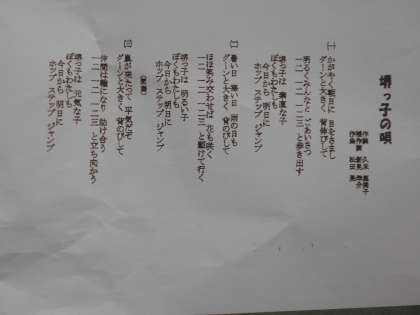 堺っ子の唄
(一)
かがやく朝日に 目をさまし
グーンと大きく 背伸びして
明るくみんなと ごあいさつ
一二 一二 一二三と歩き出す
堺っ子は 素直な子
ぼくもわたしも
今日から 明日に
ホップ ステップ ジャンプ
(二)
暑い日 寒い日 雨の日も
グーンと大きく 背のびして
ほほ笑み交わせば 花も咲く
一二 一二 一二三と駆けて行く
堺っ子は 明るい子
ぼくもわたしも
今日から 明日に
ホップ ステップ ジャンプ
(三)
嵐が来たって 平気だぞ
グーンと大きく 背のびして
仲間は輪になり 助け合う
一二 一二 一二三と立ち向かう
堺っ子は 元気な子
ぼくもわたしも
今日から 明日に
ホップ ステップ ジャンプ